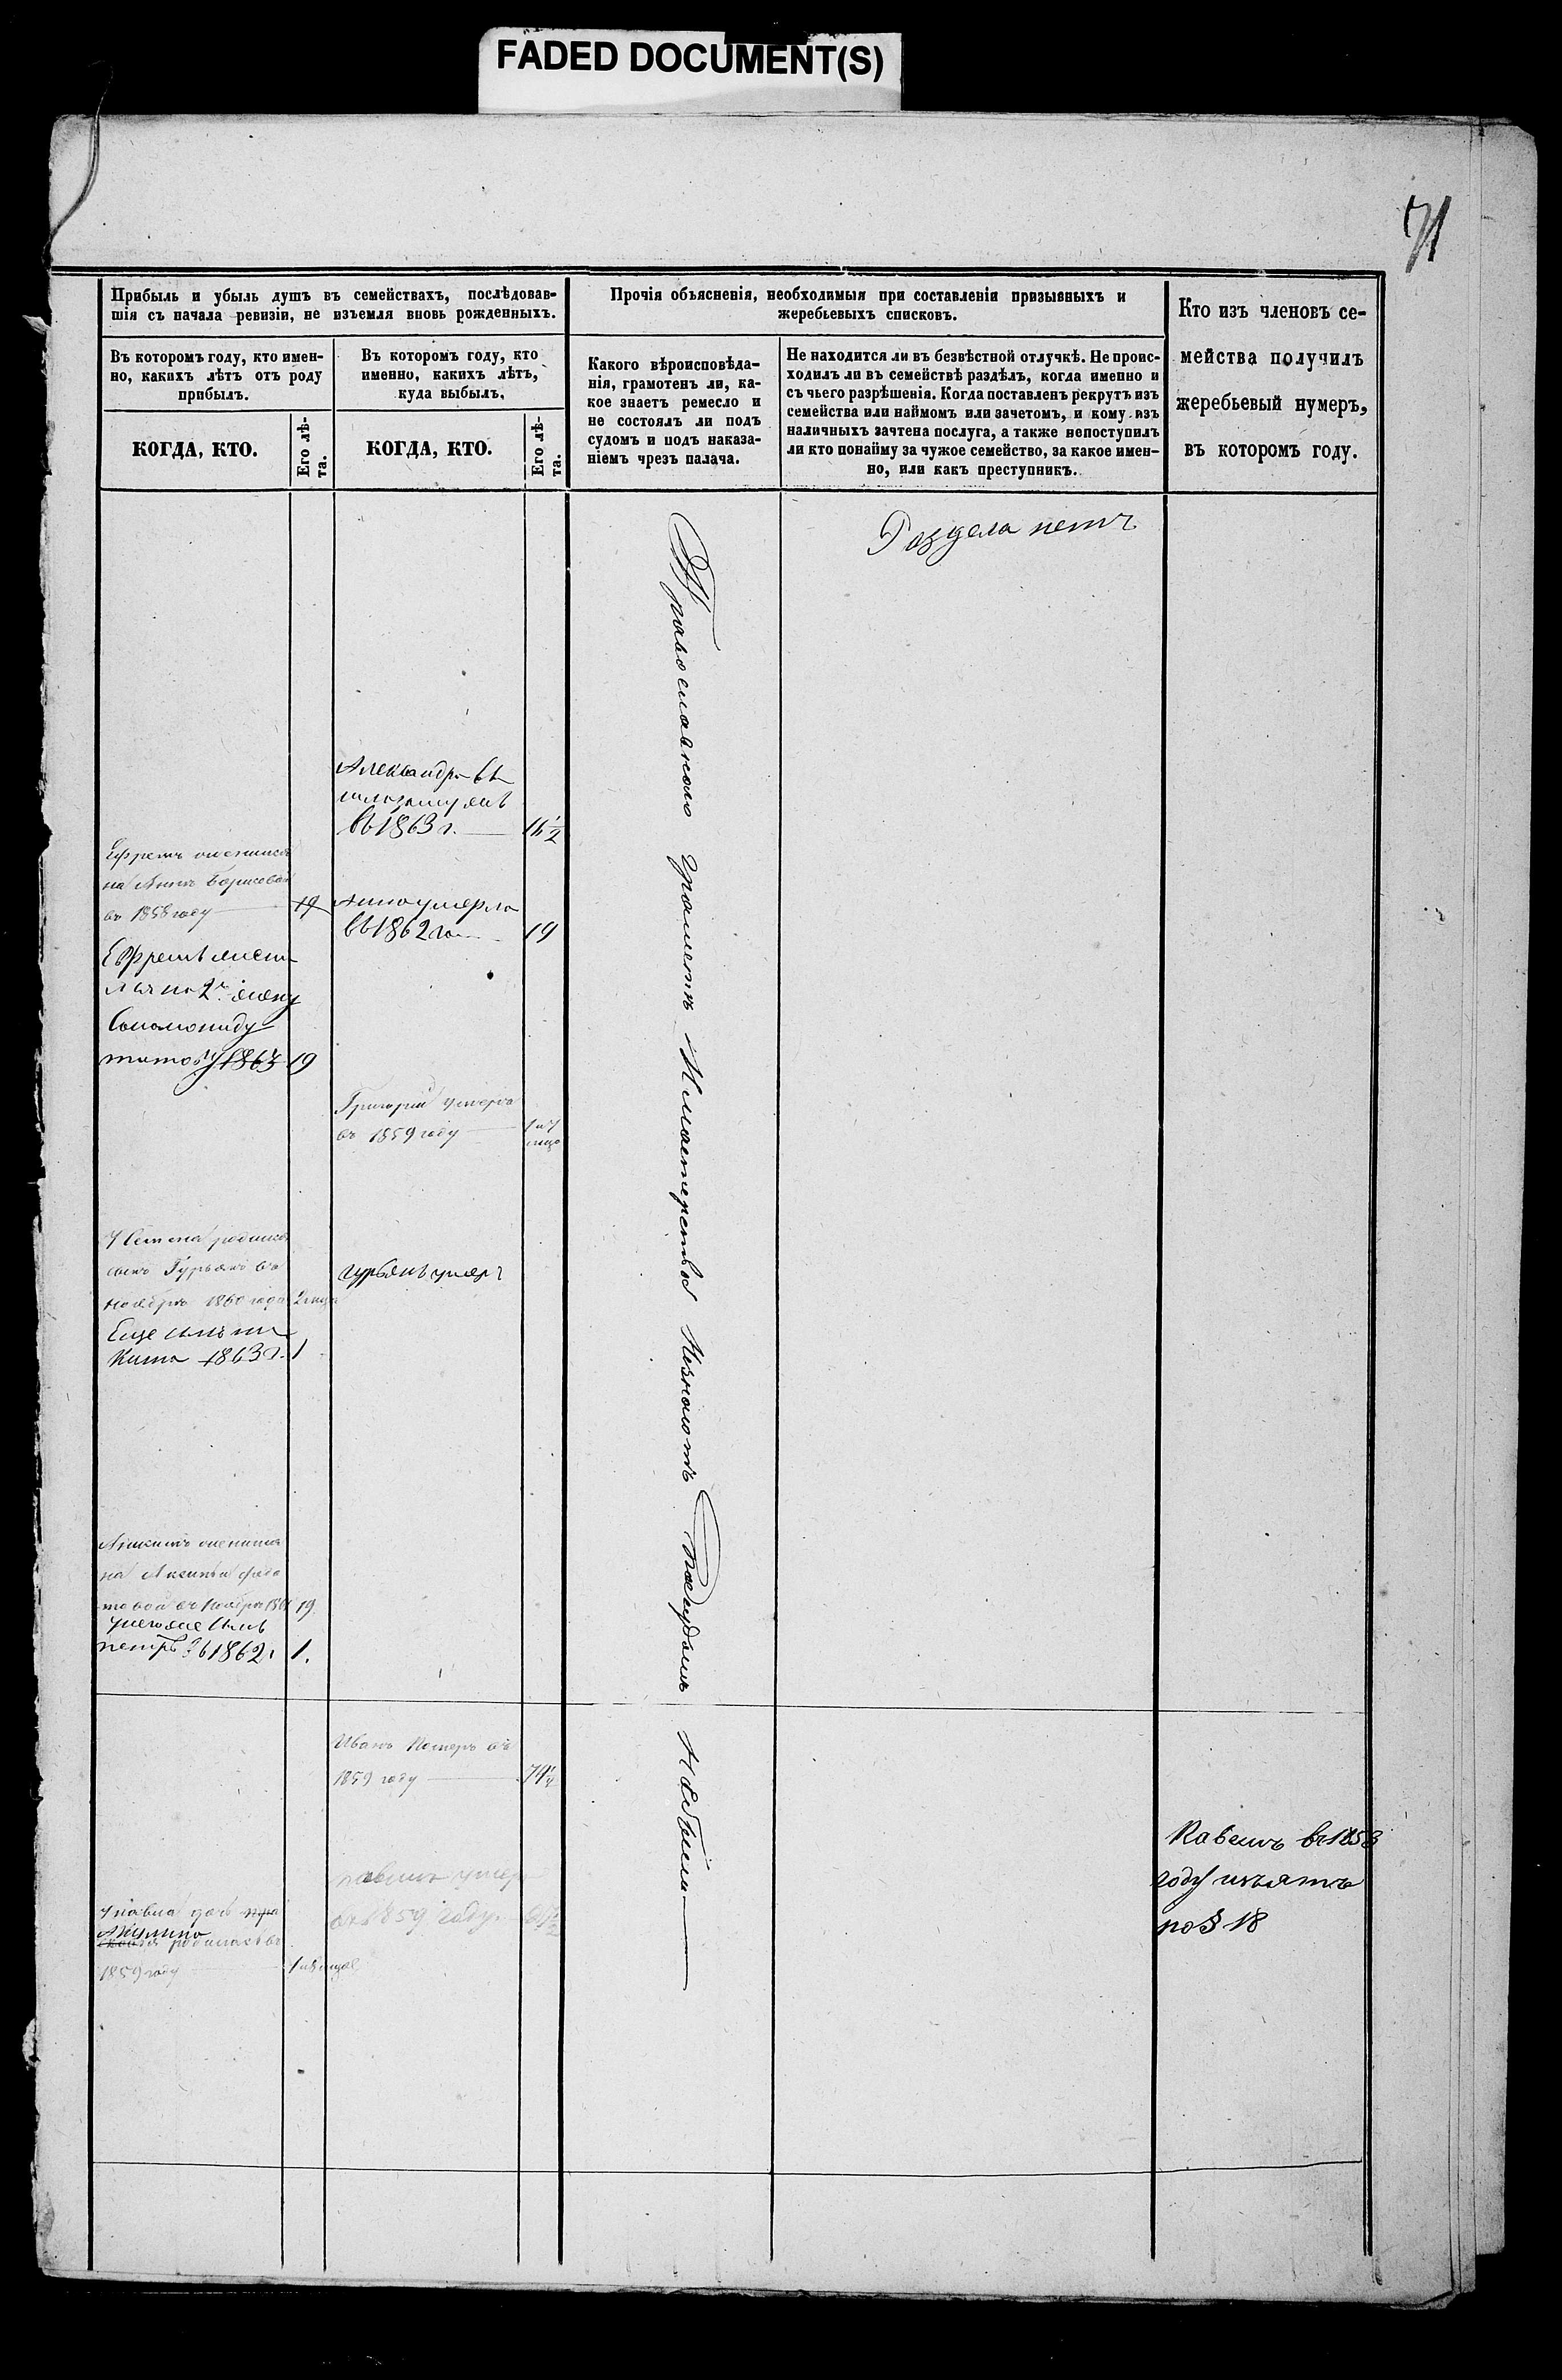 FADED DOCUMENT(S)
71
Прибыль и убыль душъ въ семействахъ, послѣдовав-
шія съ начала ревизіи, не изъемля вновь рожденныхъ.
Прочія объясненія, необходимыя при составленіи призывныхъ и
жеребьевыхъ списковъ.
Кто изъ членовъ се-
мейства получилъ
жеребьевый нумеръ,
въ которомъ году.
Въ которомъ году, кто имен-
но, какихъ лѣтъ отъ роду
прибылъ.
Въ которомъ году, кто
именно, какихъ лѣтъ,
куда выбылъ.
Какого вѣроисповѣда-
нія, грамотенъ ли, ка-
кое знаетъ ремесло и
не состоялъ ли подъ
судомъ и подъ наказа-
ніемъ чрезъ палача.
Не находится ли въ безвѣстной отлучкѣ. Не проис-
ходилъ ли въ семействѣ раздѣлъ, когда именно и
съ чьего разрѣшенія. Когда поставленъ рекрутъ изъ
семейства или наймомъ или зачетомъ, и кому изъ
наличныхъ зачтена послуга, а также непоступилъ
ли кто понайму за чужое семейство, за какое имен-
но, или какъ преступникъ.
КОГДА, КТО.
Его лѣ-
та.
КОГДА, КТО.
Его лѣ-
та.
Раздела нетъ
Православнаго грамотѣ Имастерства Незнаютъ Подсудомъ Небыли
Александра вы
шла замужъ
въ 1863 г. 16 1/2
Ефремъ женился
на Аннѣ Борисовой
въ 1858 году 19
Анна умерла
въ 1862 го 19
Ефремъ жени
лся на 2й жену
Соломониду
Титову 1863 19
Григорій умеръ
въ 1859 году
У Семена родился
сынъ Гурьянъ въ
ноябрѣ 1860 года 2 меся
Гурьянъ умеръ
Еще сынъ Ни
кита 1863 г. 1
женился
на Аксиньи Федо
товой въ ноябрѣ 1861 19
унегоже сынъ
петръ въ 1862 г 1.
Иванъ Померъ въ
1859 году 74 1/4
павелъ умеръ
въ 1859 году
У павла дочь
Акулина
родилась въ
1859 году
Павелъ въ 1853
году изъятъ
по § 18